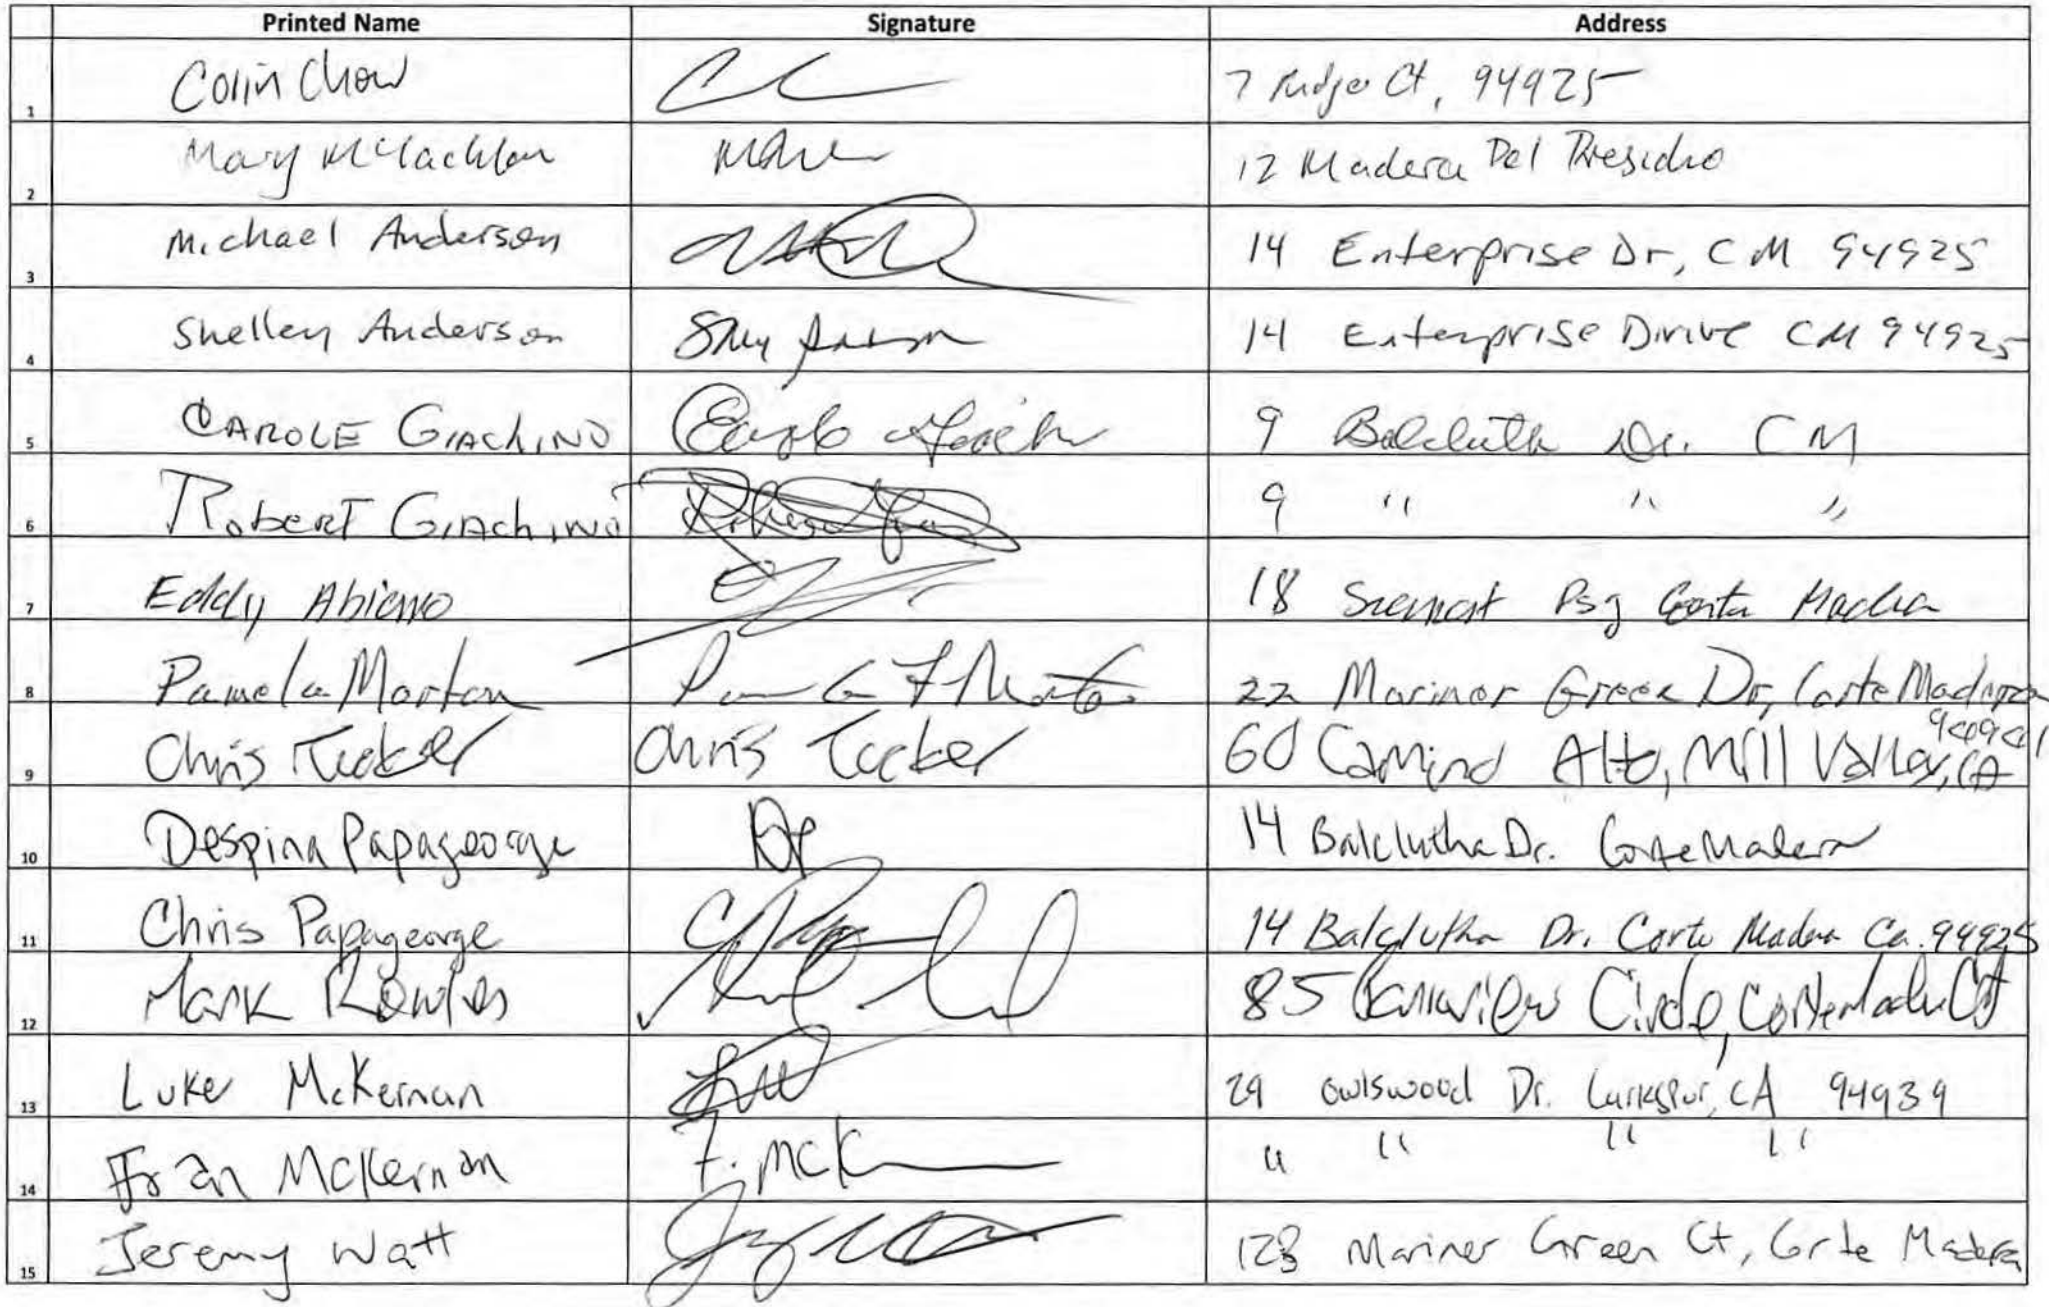 Printed Name Signature Address
1 Colin Chow 7 Ct, 94925
2 Mary McLachlan 12 Madera Del Presidio
3 Michael Anderson 14 Enterprise Dr, CM 94925
4 Shelley Anderson 14 Enterprise Drive CM 94925
5 CAROLE GIACHINO 9 Balclutha Dr. CM
6 ROBERT GIACHINO 9 " " "
7 Eddy 18 Psg Corte Madera
8 Pamela Morton 22 Mariner Green Dr, Corte Madera
9 Chris Tucker Chris Tucker 60 Camino Alto, Mill Valley, CA 94941
10 Despina Papageorge DP 14 Balclutha Dr. Corte Madera
11 Chris Papageorge 14 Balclutha Dr. Corte Madera Ca. 94925
12 Mark 85 Circle, Corte Madera CA
13 Luke McKernan 29 Owlswood Dr. Larkspur, CA 94939
14 Fran McKernan F. McK " " " "
15 Jeremy Watt 128 Mariner Green Ct, Corte Madera